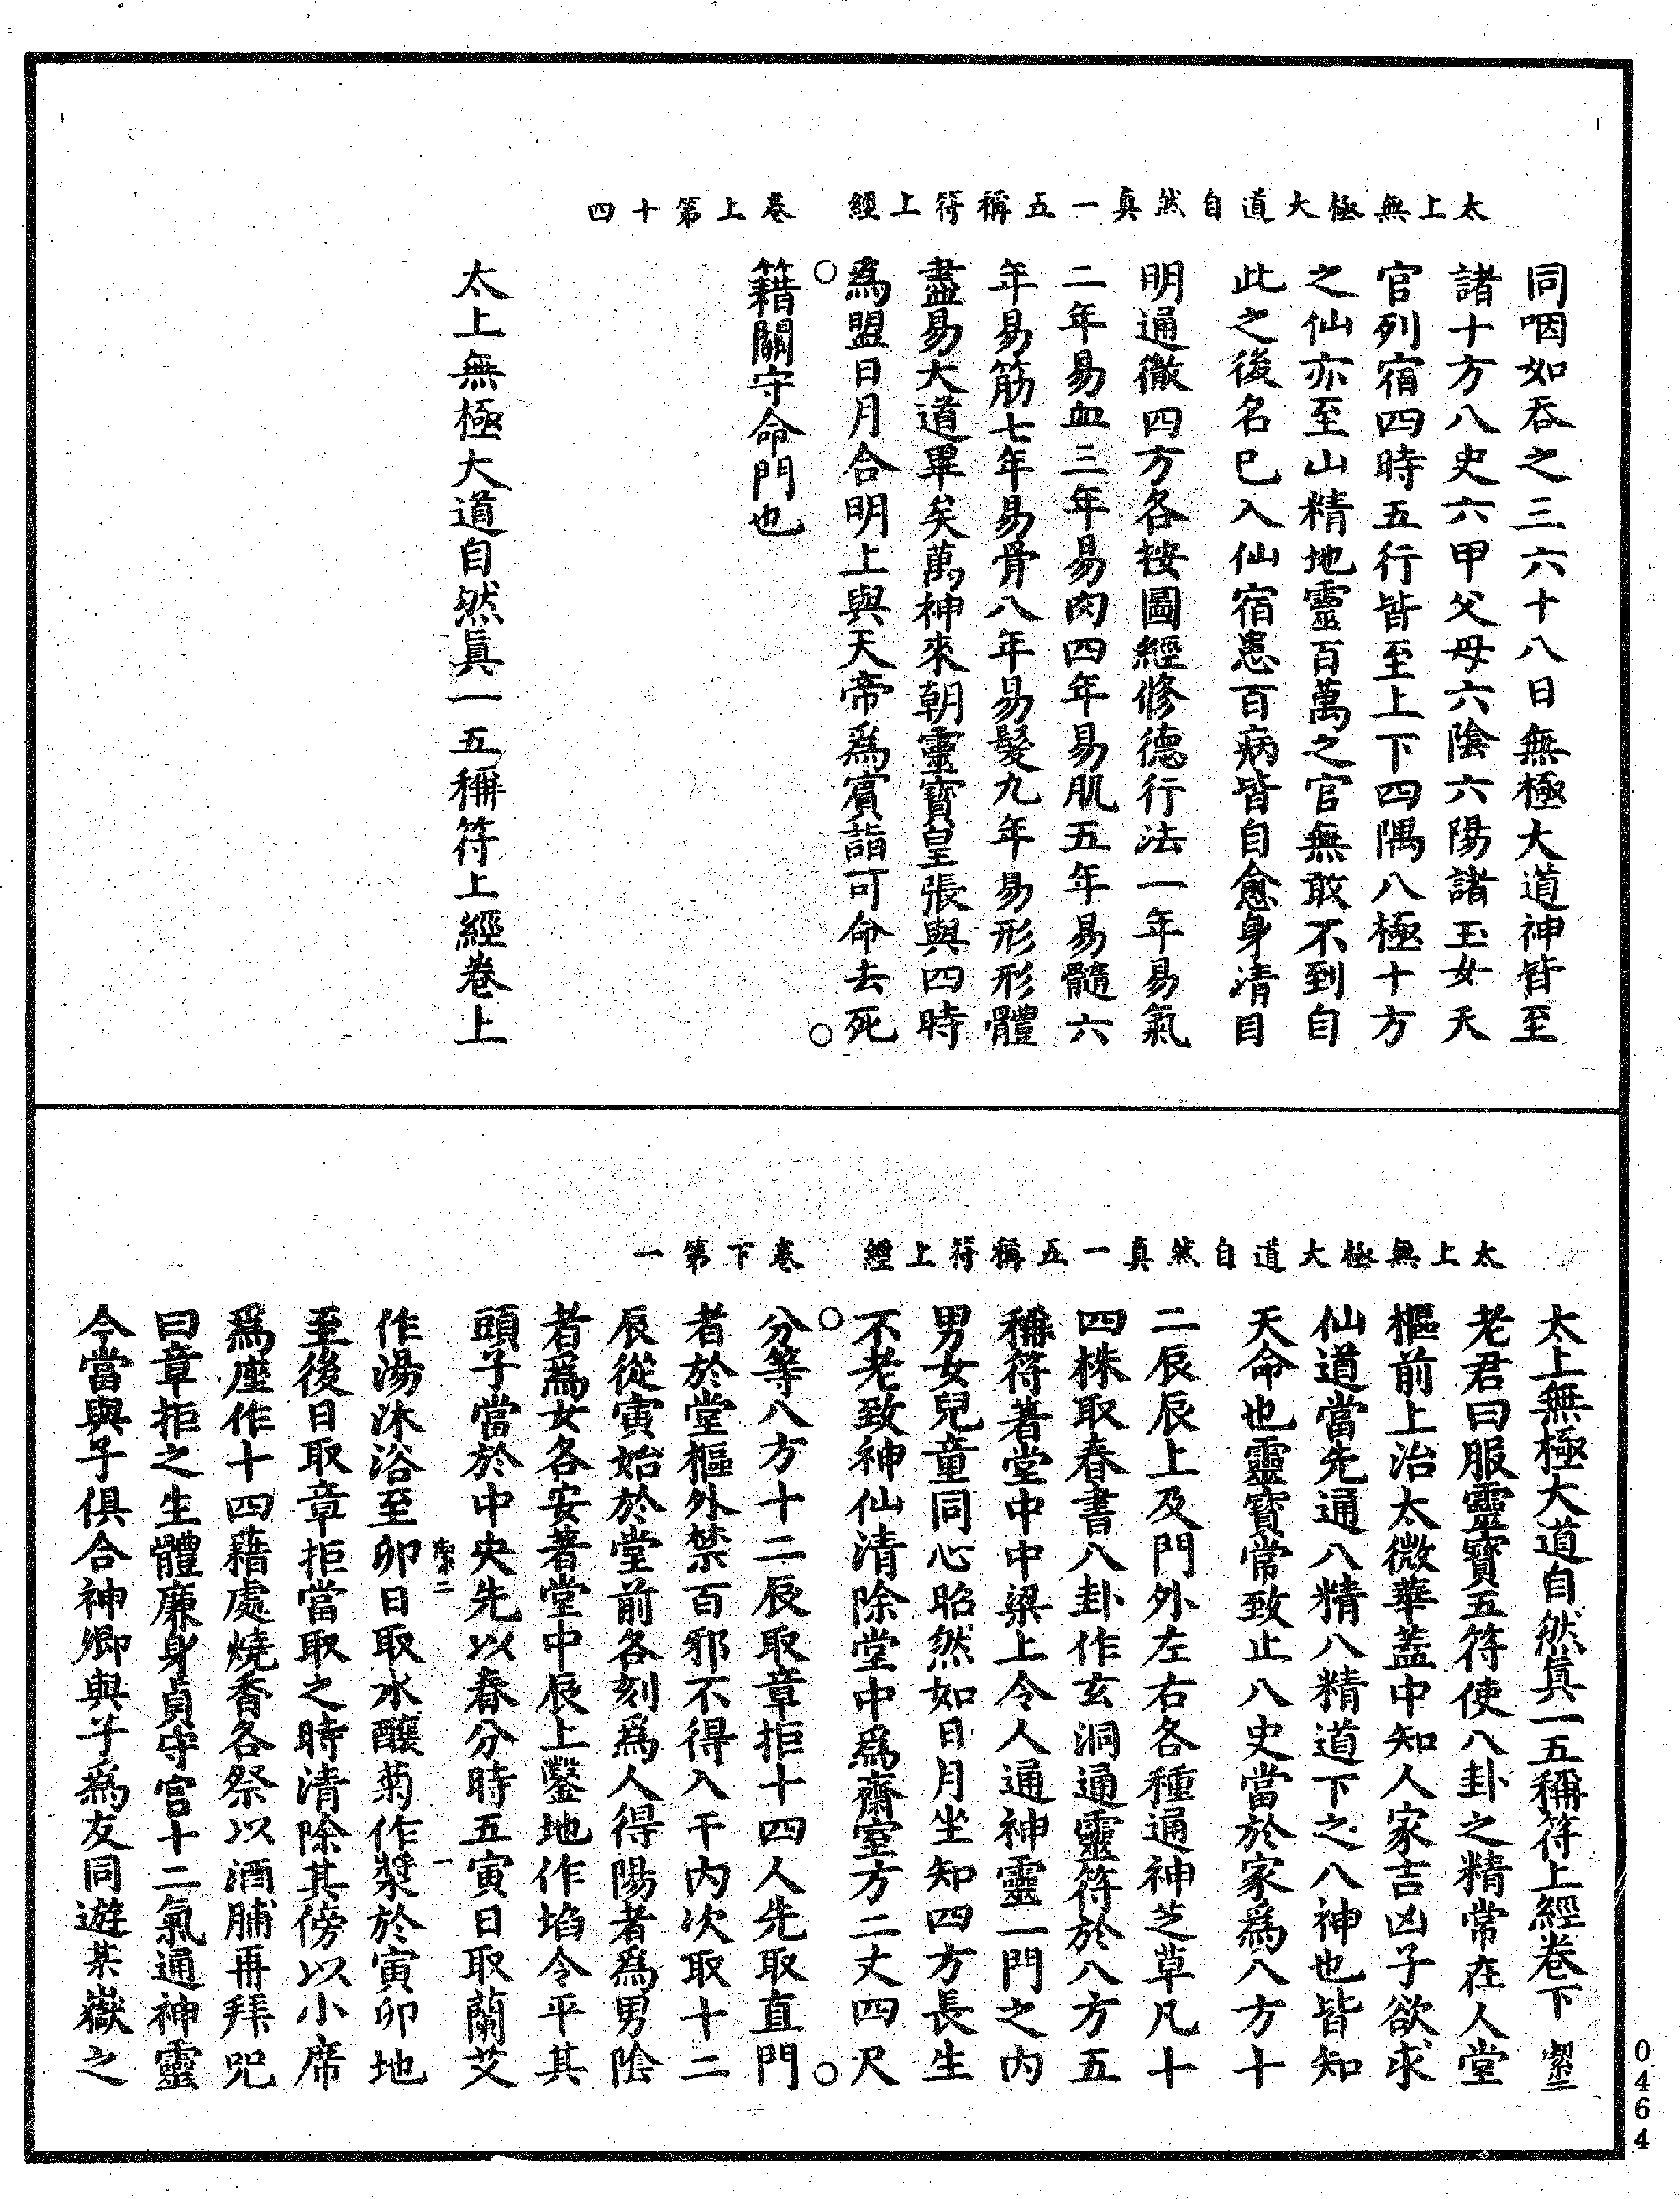 太上無極大道自然真一五稱符上經　卷上第十四
同咽如吞之三六十八日無極大道神皆至
諸十方八史六甲父母六陰六陽諸玉女天
官列宿四時五行皆至上下四隅八極十方
之仙亦至山精地靈百萬之官無敢不到自
此之後名已入仙宿患百病皆自愈身清目
明通徹四方各按圖經修德行法一年易氣
二年易血三年易肉四年易肌五年易髓六
年易筋七年易骨八年易髮九年易形形體
盡易大道畢矣萬神來朝靈寶皇張與四時
爲盟日月合明上與天帝爲賓詣可命去死
籍關守命門也
太上無極大道自然眞一五稱符上經卷上
太上無極大道自然真一五稱符上經　卷下第一
太上無極大道自然眞一五稱符上經卷下　潔二
老君曰服靈寶五符使八卦之精常在人堂
樞前上治太微華蓋中知人家吉凶子欲求
仙道當先通八精八精道下之八神也皆知
天命也靈寶常致止八史當於家爲八方十
二辰辰上及門外左右各種通神芝草凡十
四株取春書八卦作玄洞通靈符於八方五
稱符著堂中中梁上令人通神靈一門之內
男女兒童同心昭然如日月坐知四方長生
不老致神仙清除堂中爲齋室方二丈四尺
分等八方十二辰取章拒十四人先取直門
者於堂樞外禁百邪不得入干內次取十二
辰從寅始於堂前各刻爲人得陽者爲男陰
者爲女各安著堂中辰上鑿地作埳令平其
頭子當於中央先以春分時五寅日取蘭艾
潔二　一
作湯沐浴至卯日取水釀菊作漿於寅卯地
至後日取章拒當取之時清除其傍以小席
爲座作十四藉處燒香各祭以酒脯再拜呪
曰章拒之生體廉身貞守官十二氣通神靈
今當與子俱合神卿與子爲友同遊某嶽之
0464